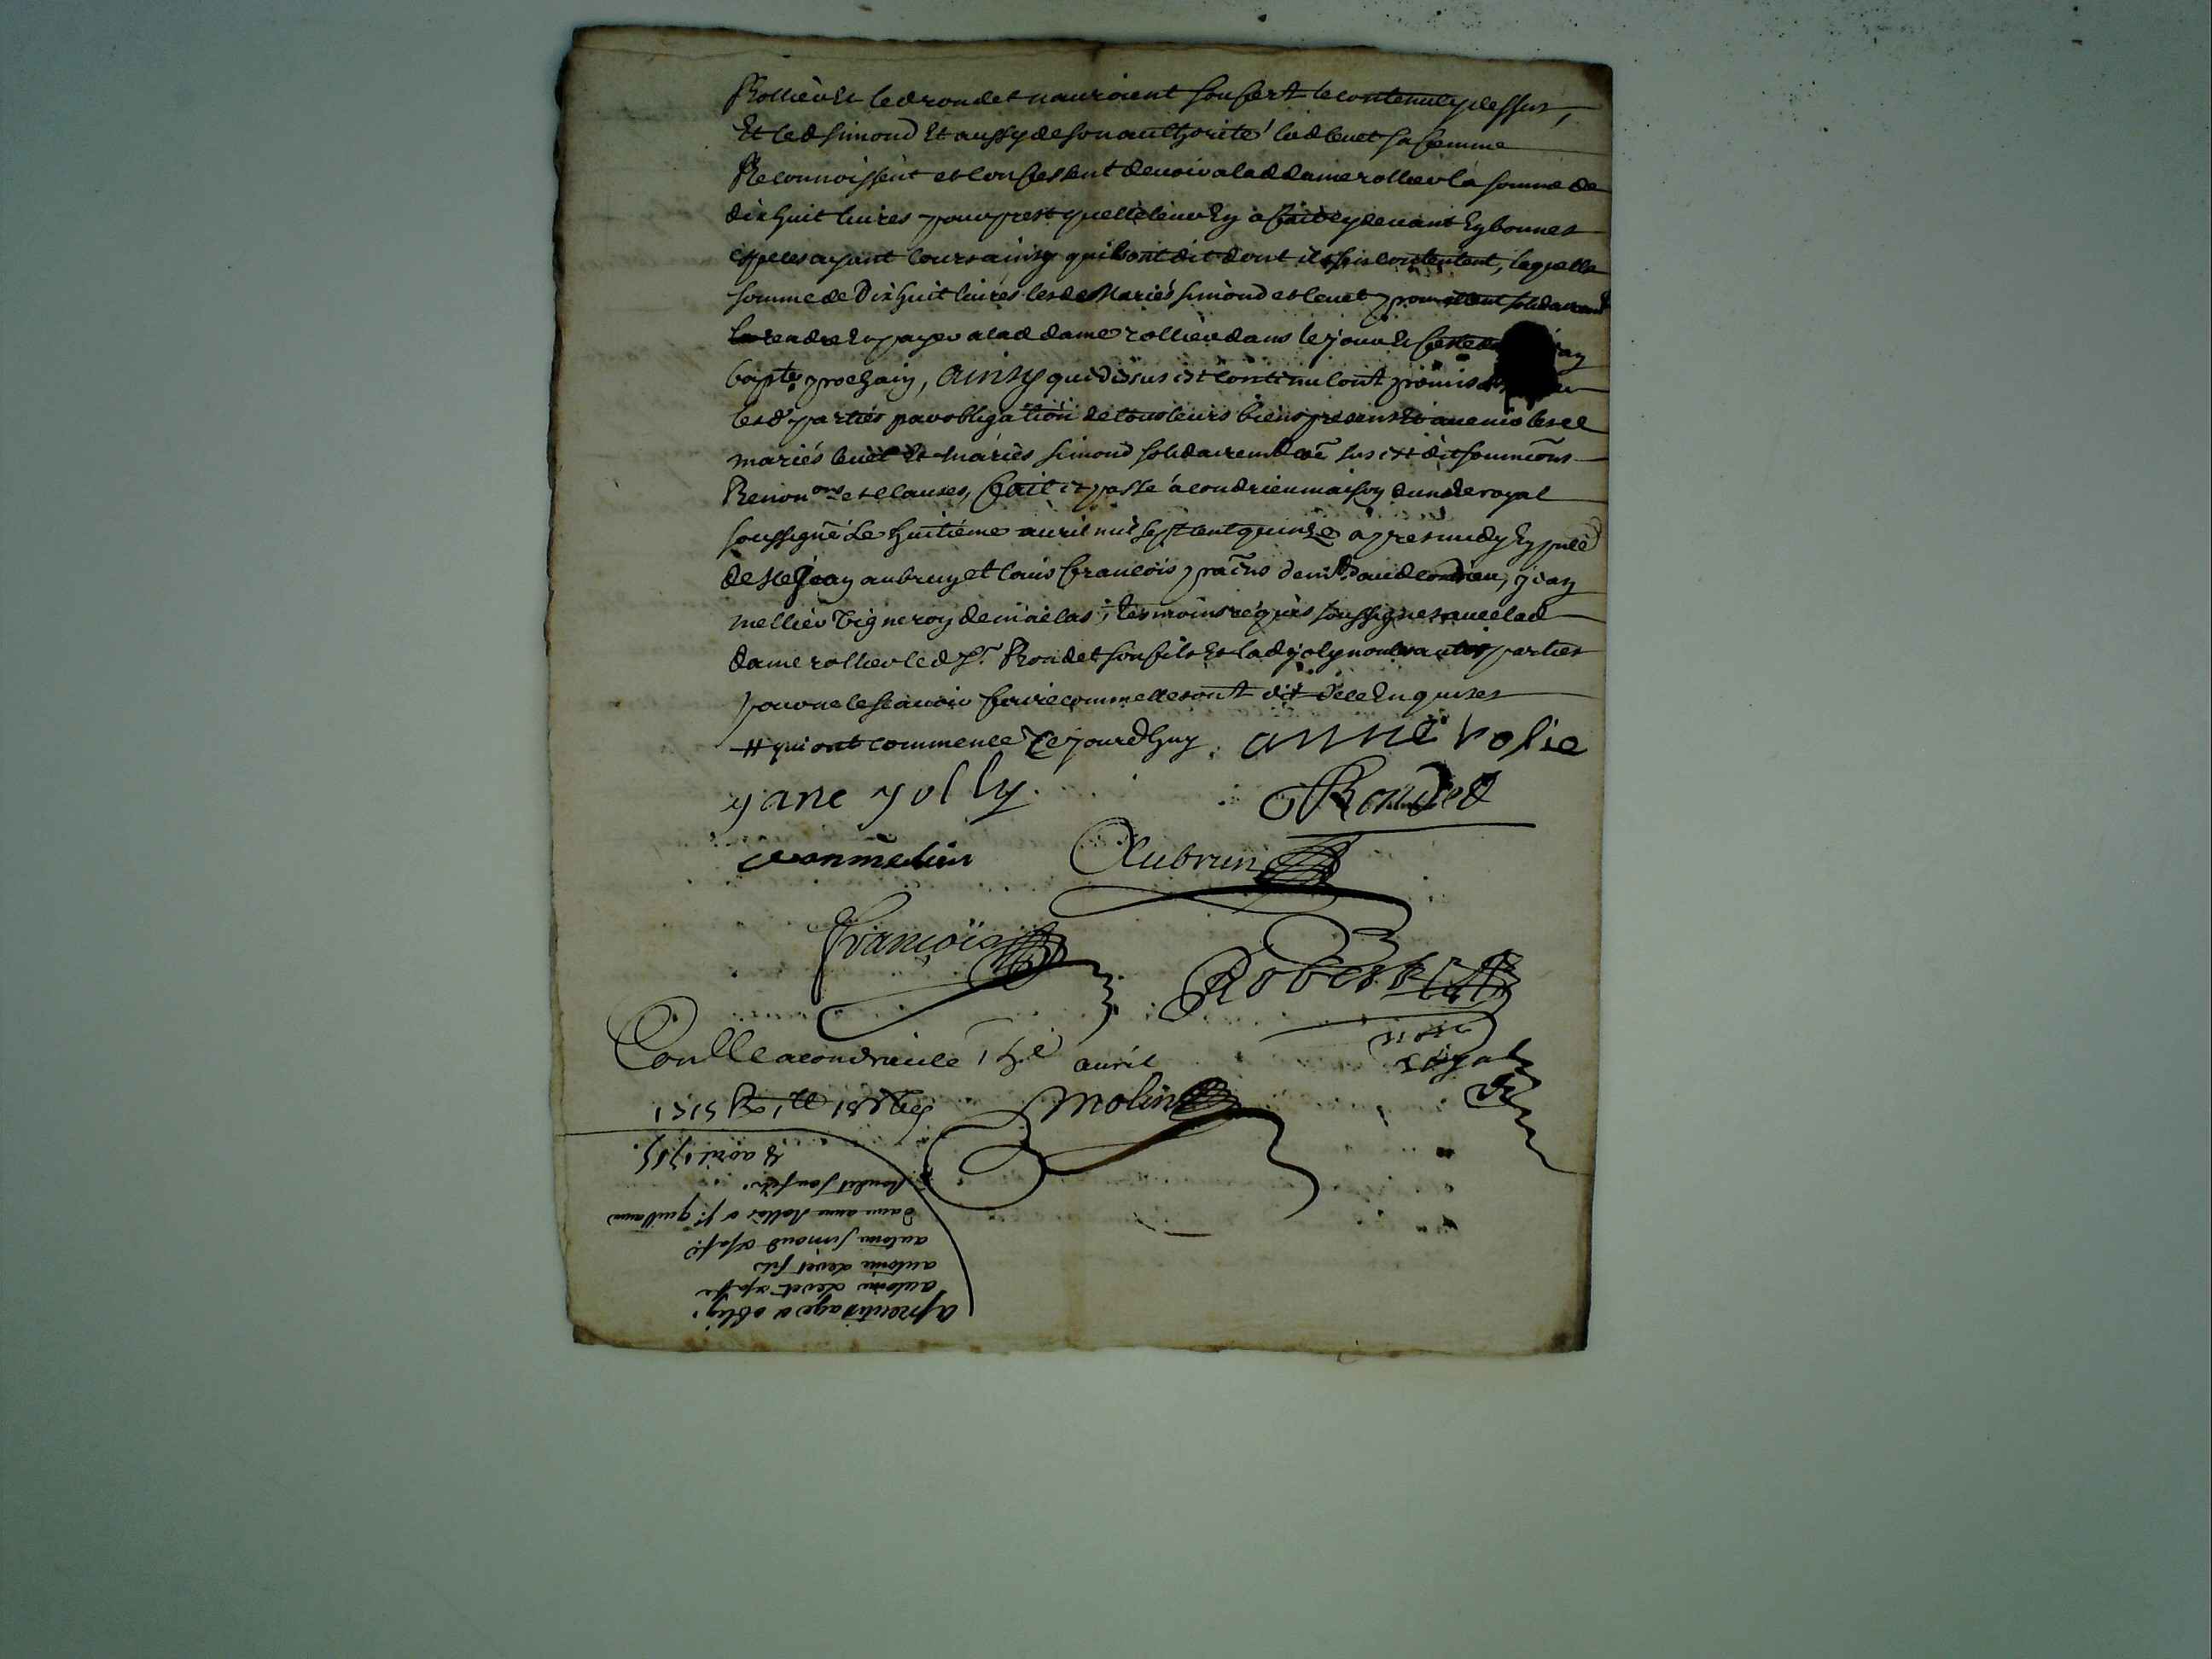 Rollier et led rondet nauroient soufert le contenu cy dessus,
Et led simond Et aussy de son authorité lad levet sa femme
Reconnoissent et confessent devoir a lad dame rollier la somme de
dix huit livres pour prest quelle leur En a fait cy devant En bonnes
especes ayant cours ainsy quils ont dit dont ils se contentent, laquelle
somme de Dix huit livres lesd Mariés simond et levet promettent solidairemt
rendre Et payer a lad dame rollier dans le jour Et feste de
bapte prochain, Ainsy que dessus est contenu lont promis
lesd parties par obligation de tous leurs biens presents Et avenir lesd
mariés levet Et mariés simond solidairemt co͠e sus est dit soumi͠ons
Renon͠ons et clauses, fait et passé a condrieu maison du no͠re royal
soussigné Le huitième avril mil sept cent quinze apres midy En pnce
de sr Jean aubrun et louis francois pra͠ns demt aud condrieu, jean
mellier vigneron de ma͠clas, tesmoins requis soussignes avec lad
dame rollier led sr Rondet son fils Et lad joly non les autres parties
pour ne le scavoir faire comme elles ont dit de ce Enquises
# qui ont commencé Ce jourdhuy. anne rolie
jane jolly. Rondet
Aubrun
françois Robert
no͠re
royal
Conlle a condrieu le 15e avril
molin
8 avril 1715.
Rondet son fils.
dame anne Rollier & sr guillaume
antoine simond & sa fe
antoine levet fils
antoine levet & sa fe
aprentisage & oblig.